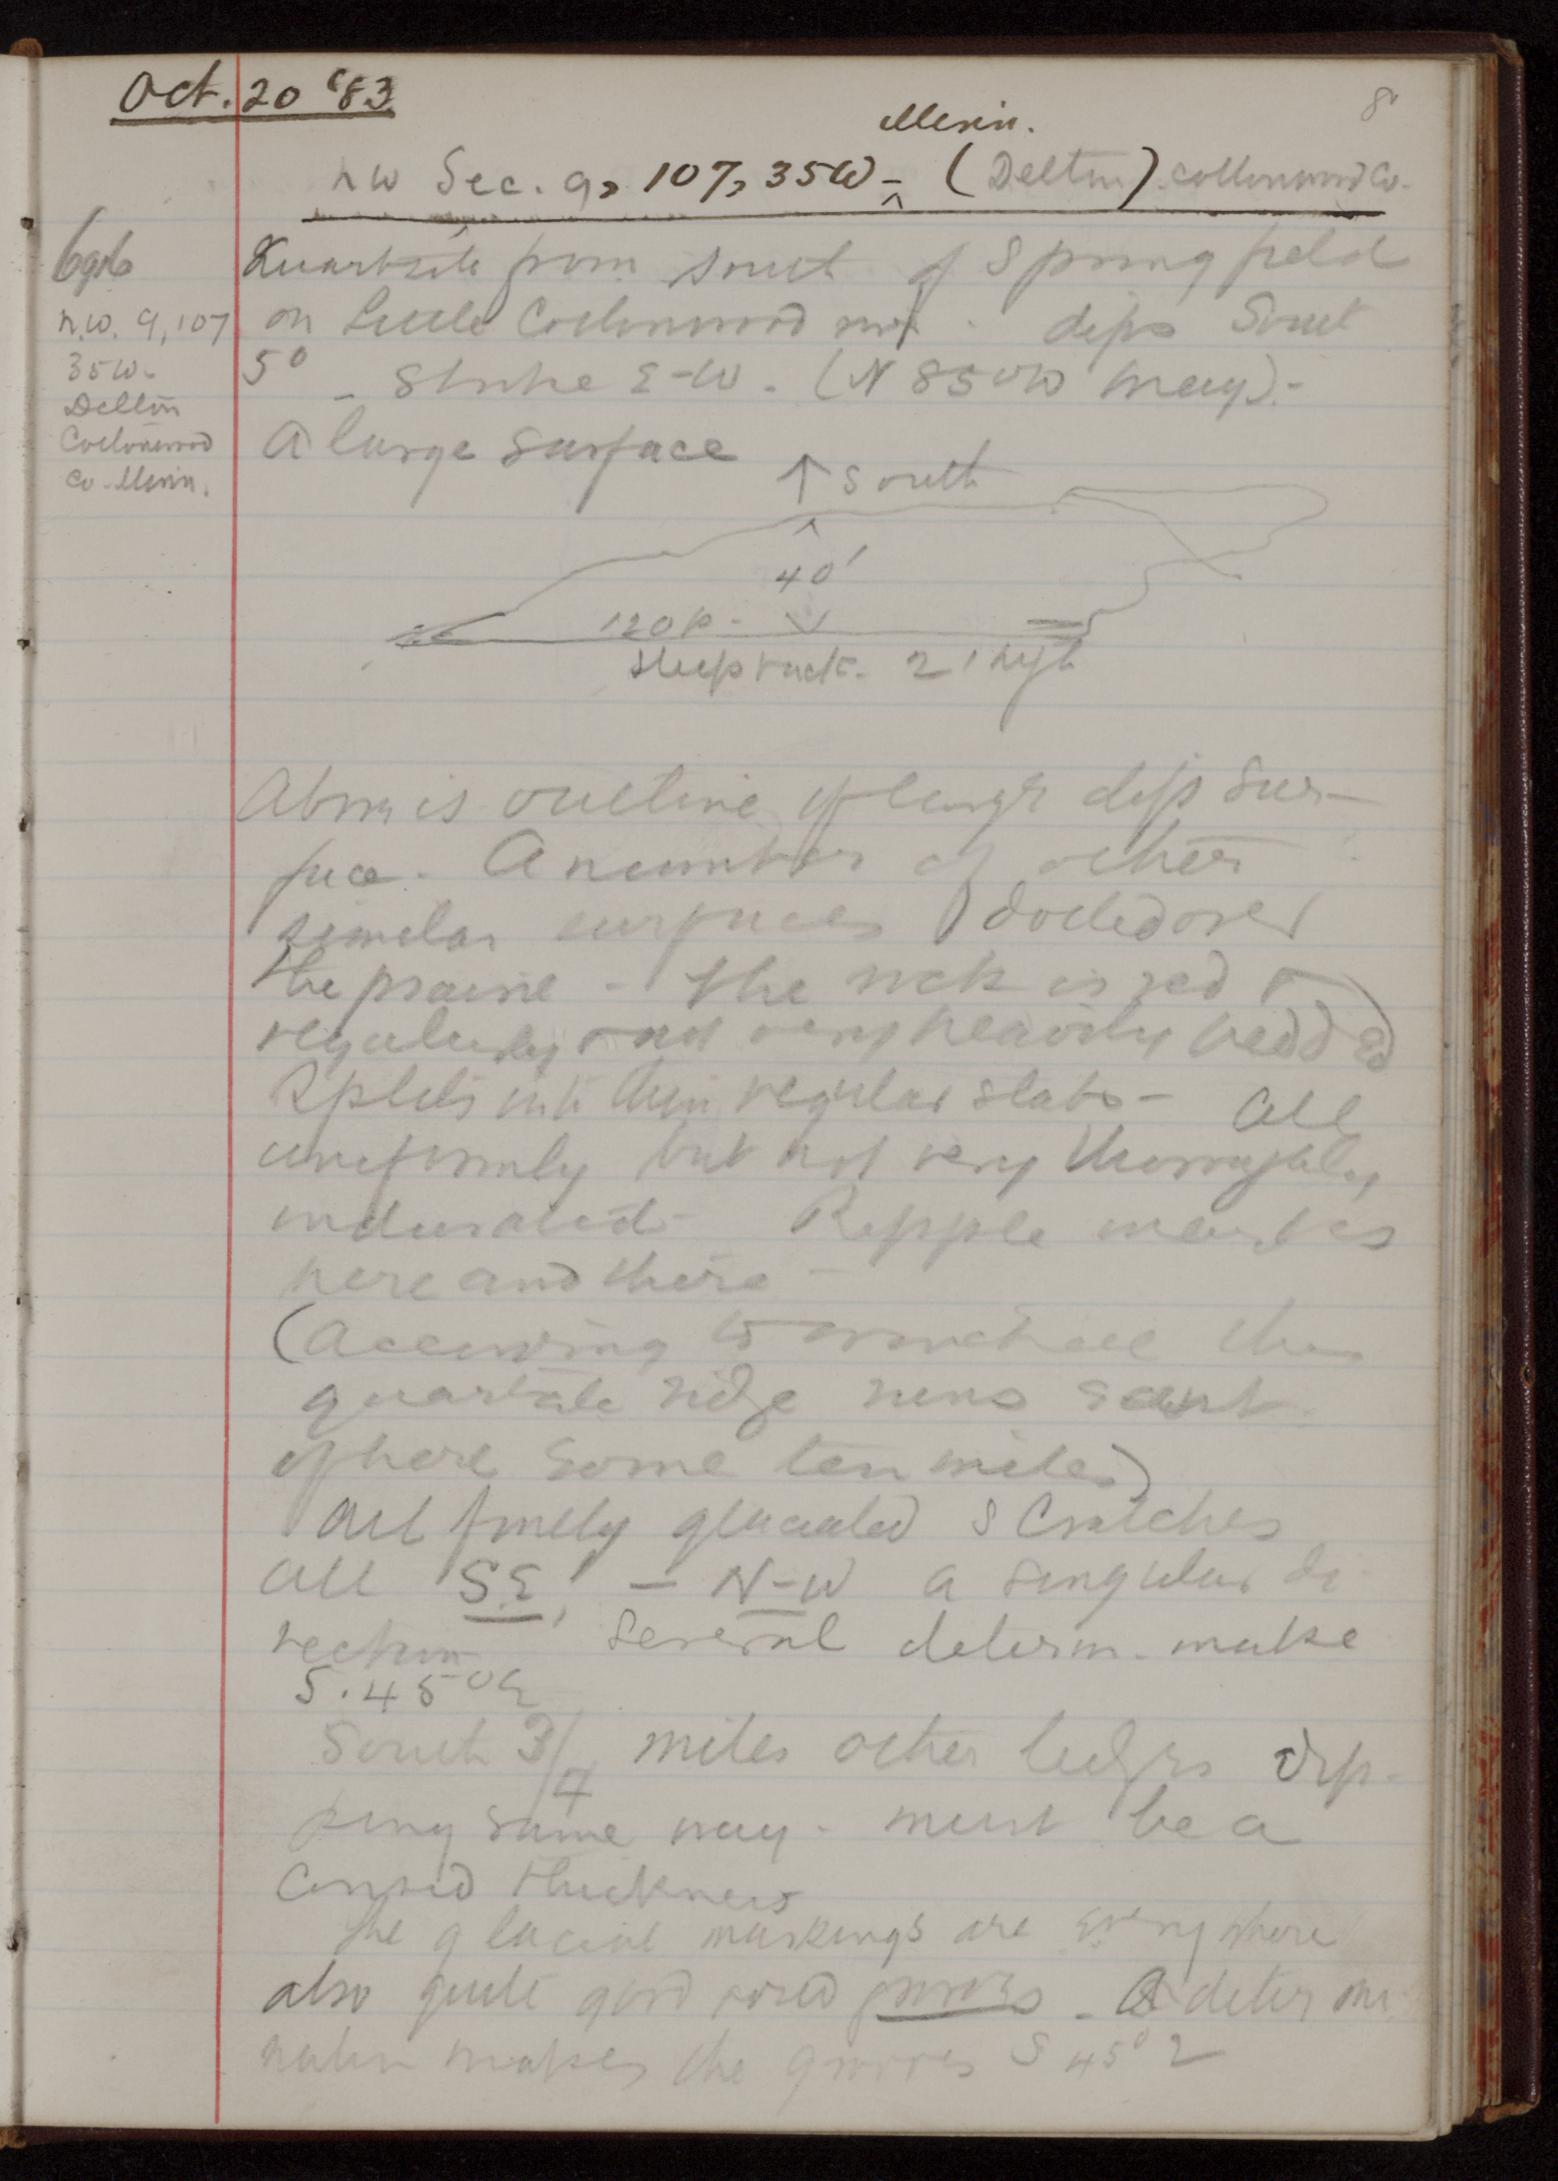 Oct. 20 '83
8
Minn.
NW Sec. 9, 107, 35W - (Delton) Cottonwood Co.
n.w. 9, 107
35W.
Delton
Cottonwood
Co. Minn.
Quartzite from south of Springfield
on Little Cottonwood dips South
5° - Strike E-W. (N 85° W mag).-
A large surface
↑ South
40'
120 p.
Steep rock. 2' high
Above is outline of large dip sur-
face. A number of other
similar surfaces dotted over
the prairie - The rock is red
regularly and very heavily bedded
Splits into thin regular slabs - all
uniformly but not very thoroughly
indurated - Ripple marks
here and there -
(According to the
quartzite ridge runs east
of here some ten miles)
All finely glaciated scratches
all SE, - N-W a singular di-
rection Several determ. make
S. 45° E
South 3/4 miles other ledges dip-
ping same way - must be a
consid thickness
The glacial markings are everywhere
also quite good sized grooves - A determi
nation makes the grooves S 45° E